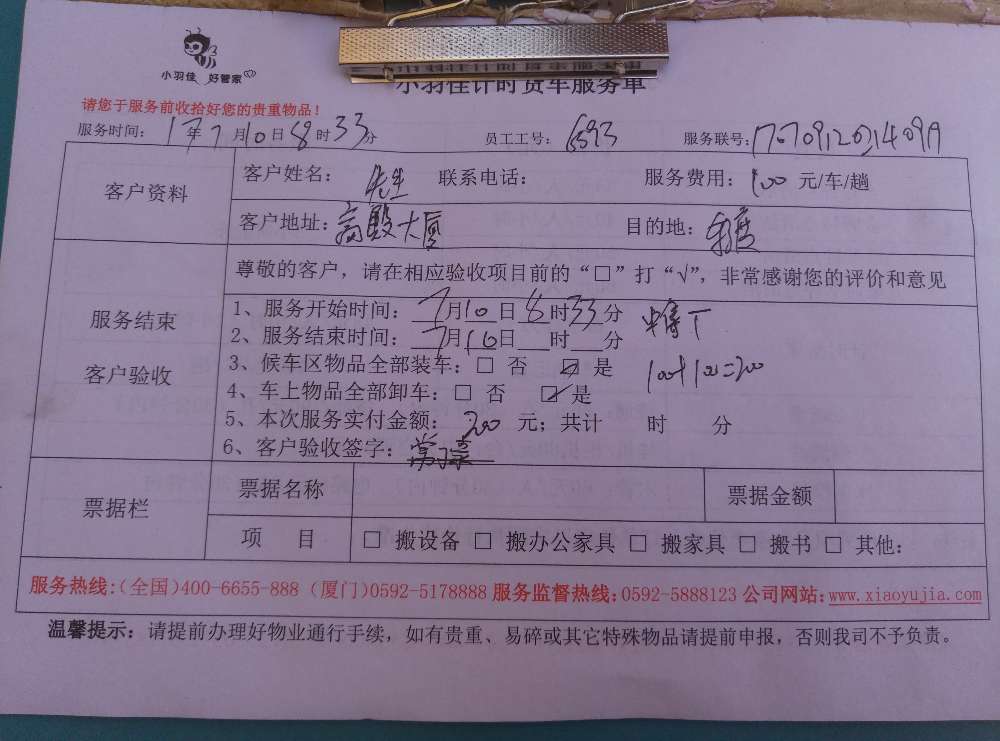 小羽佳 好管家
小羽佳计时货车服务单
请您于服务前收拾好您的贵重物品！
服务时间： 17年 7月10日 8时33分 员工工号： 6593 服务联号：
客户资料 客户姓名： 先生 联系电话： 服务费用：100元/车/趟
客户地址：高殿大厦 目的地：
服务结束 客户验收
尊敬的客户，请在相应验收项目前的“□”打“√”，非常感谢您的评价和意见
1、服务开始时间：7月10日8时33分
2、服务结束时间：7月10日 时 分
3、候车区物品全部装车：□ 否 ☑ 是 100+100=200
4、车上物品全部卸车：□ 否 ☑ 是
5、本次服务实付金额：200 元；共计 时 分
6、客户验收签字：
票据栏 票据名称 票据金额
项 目 □ 搬设备 □ 搬办公家具 □ 搬家具 □ 搬书 □ 其他：
服务热线：（全国）400-6655-888（厦门）0592-5178888 服务监督热线：0592-5888123 公司网站：www.xiaoyujia.com
温馨提示：请提前办理好物业通行手续，如有贵重、易碎或其它特殊物品请提前申报，否则我司不予负责。